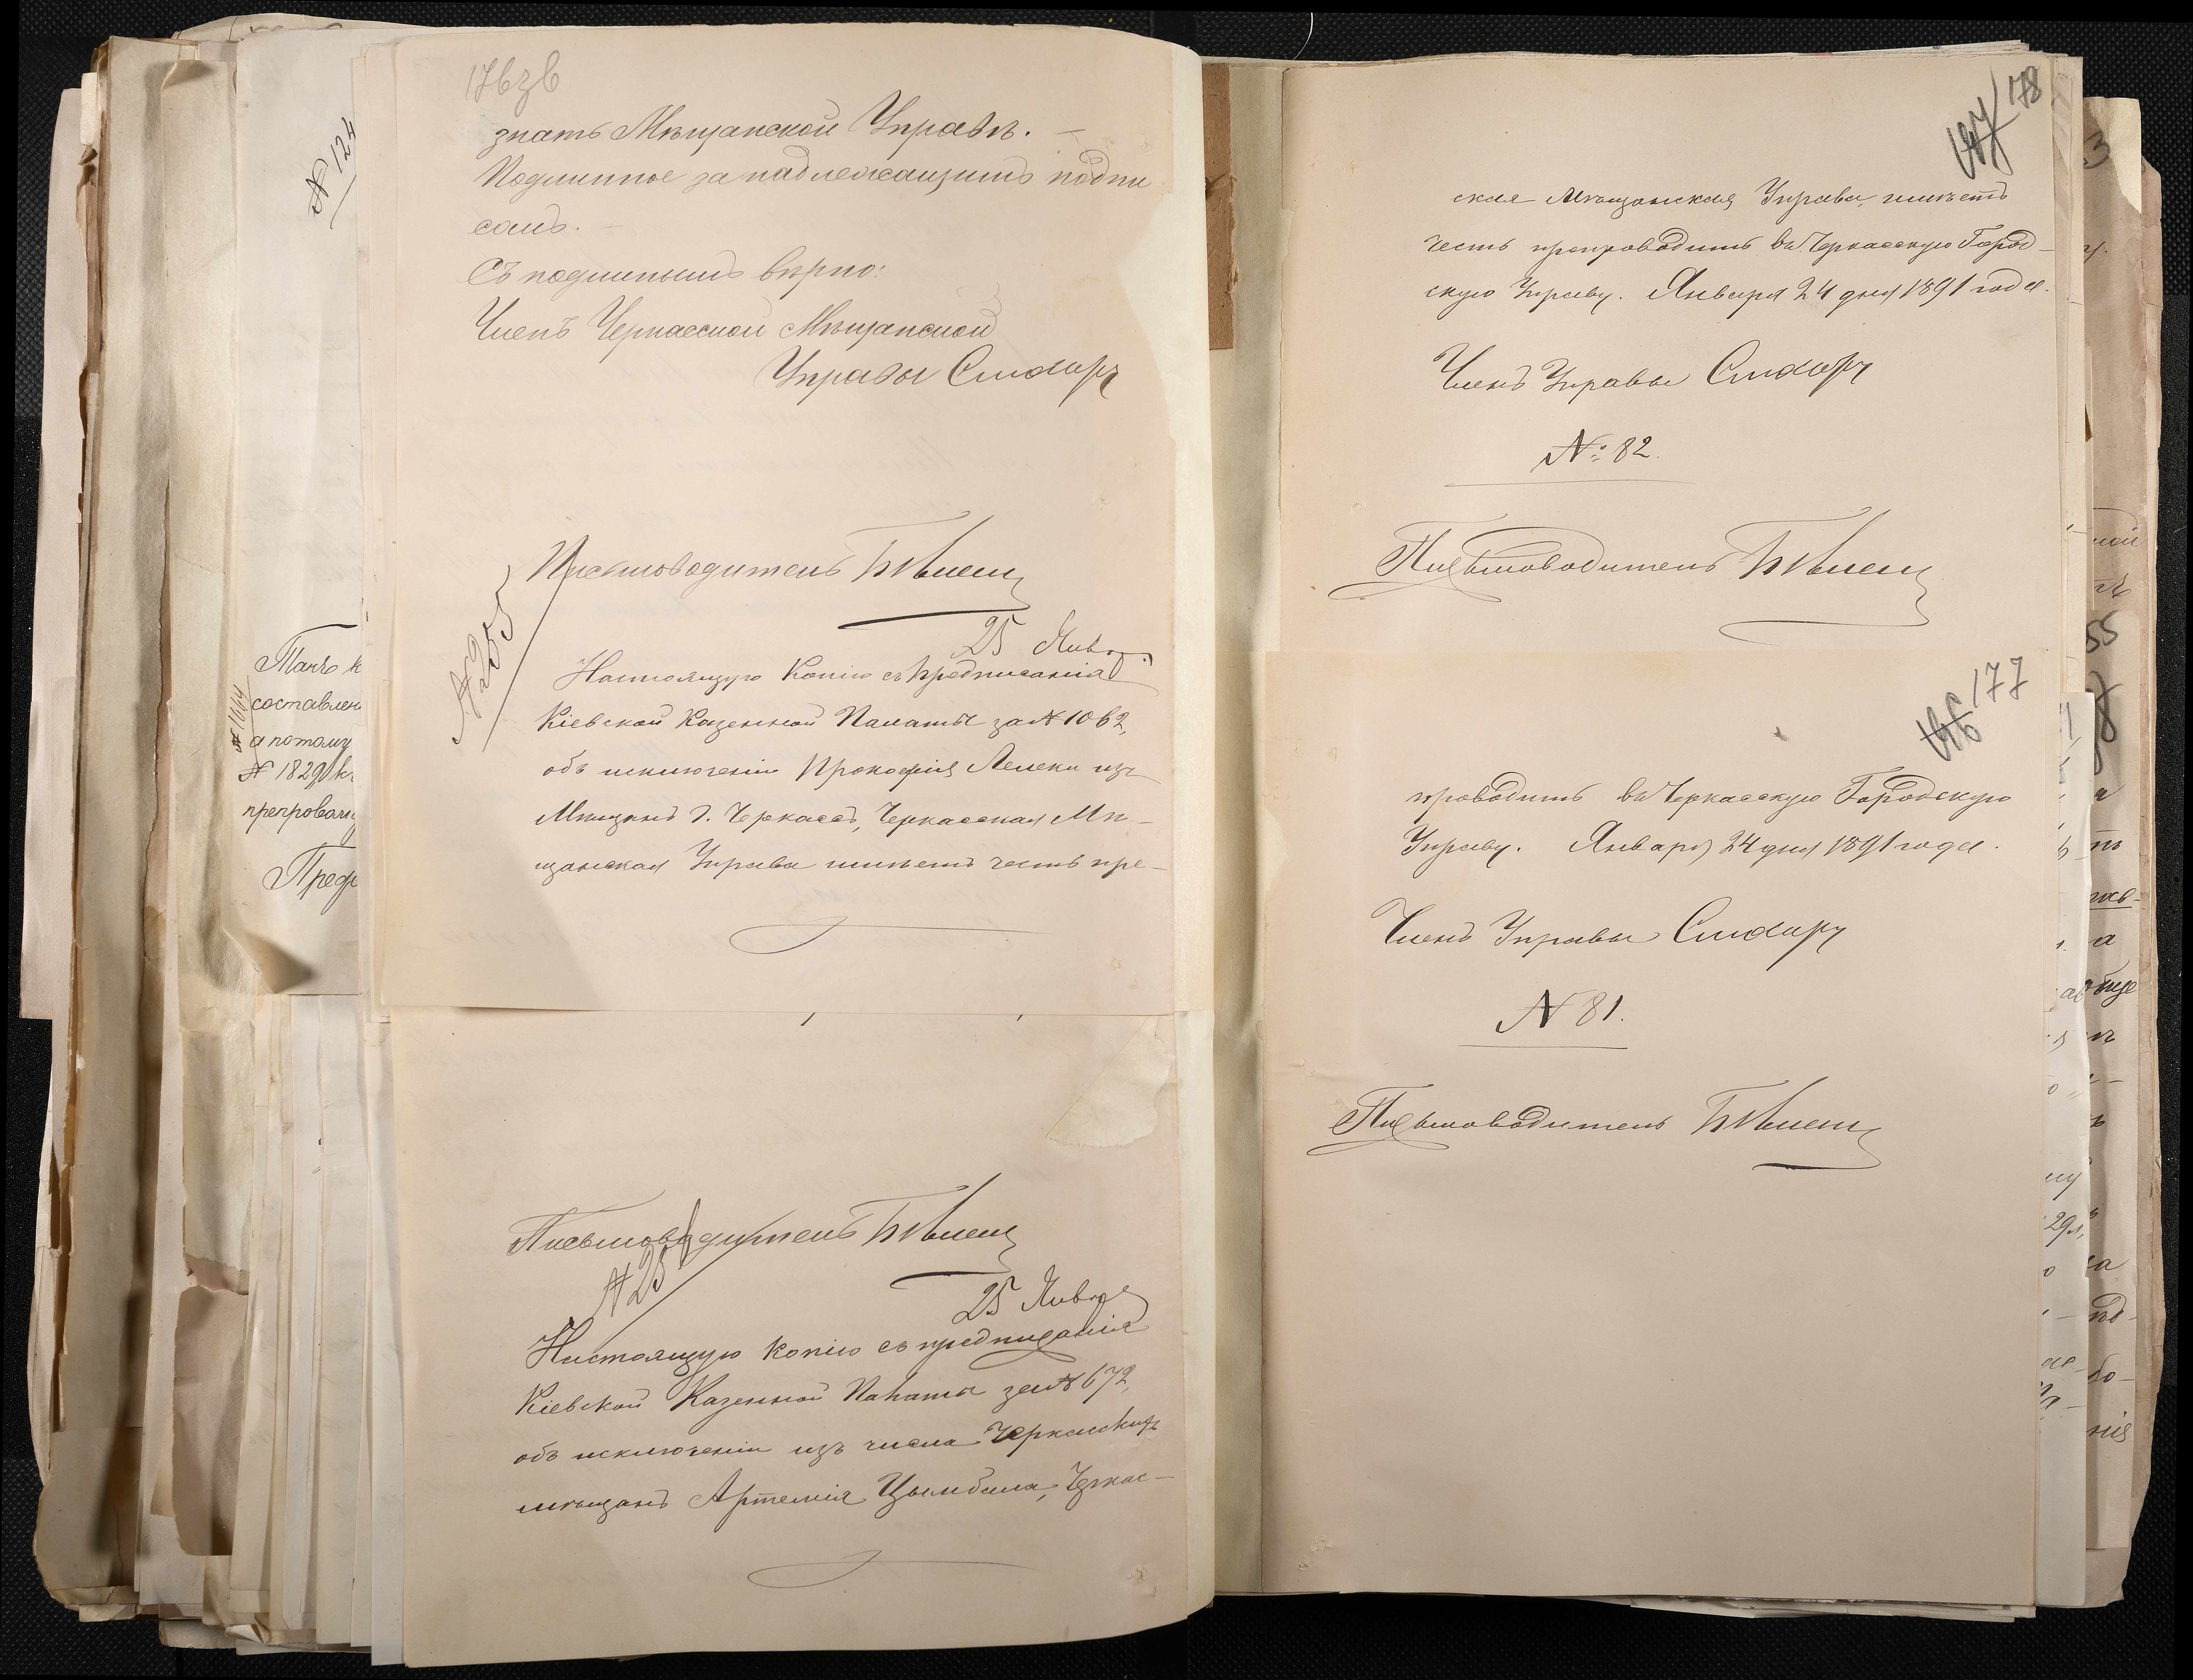 176зв
знать Мѣщанской Управѣ. —
Подлинное за надлежащимъ подпи
сомъ. —
Съ подлиннымъ вѣрно:
Членъ Черкасской Мѣщанской
Управы
Письмоводитель
№ 255
25 Янв.
Настоящую копію съ предписанія
Кіевской Казенной Палаты за № 1062,
объ исключеніи Прокофія Лелеки изъ
Мѣщанъ г. Черкассъ, Черкасская Мѣ-
щанская Управа имѣетъ честь пре-
Письмоводитель
25 Января
Настоящую копію съ предписанія
Кіевской Казенной Палаты за № 672,
объ исключеніи изъ числа Черкасскихъ
мѣщанъ Артемія Цымбала, Черкас-
№ 124
Такъ к
составлен
№ 1664
а потому
№ 1829 к
препровож
Предс
178
ская Мѣщанская Управа, имѣетъ
честь препроводить въ Черкасскую Город-
скую Управу. Января 24 дня 1891 года.
Членъ Управы
№ 82.
Письмоводитель
177
проводить въ Черкасскую Городскую
Управу. Января 24 дня 1891 года.
Членъ Управы
№ 81.
Письмоводитель